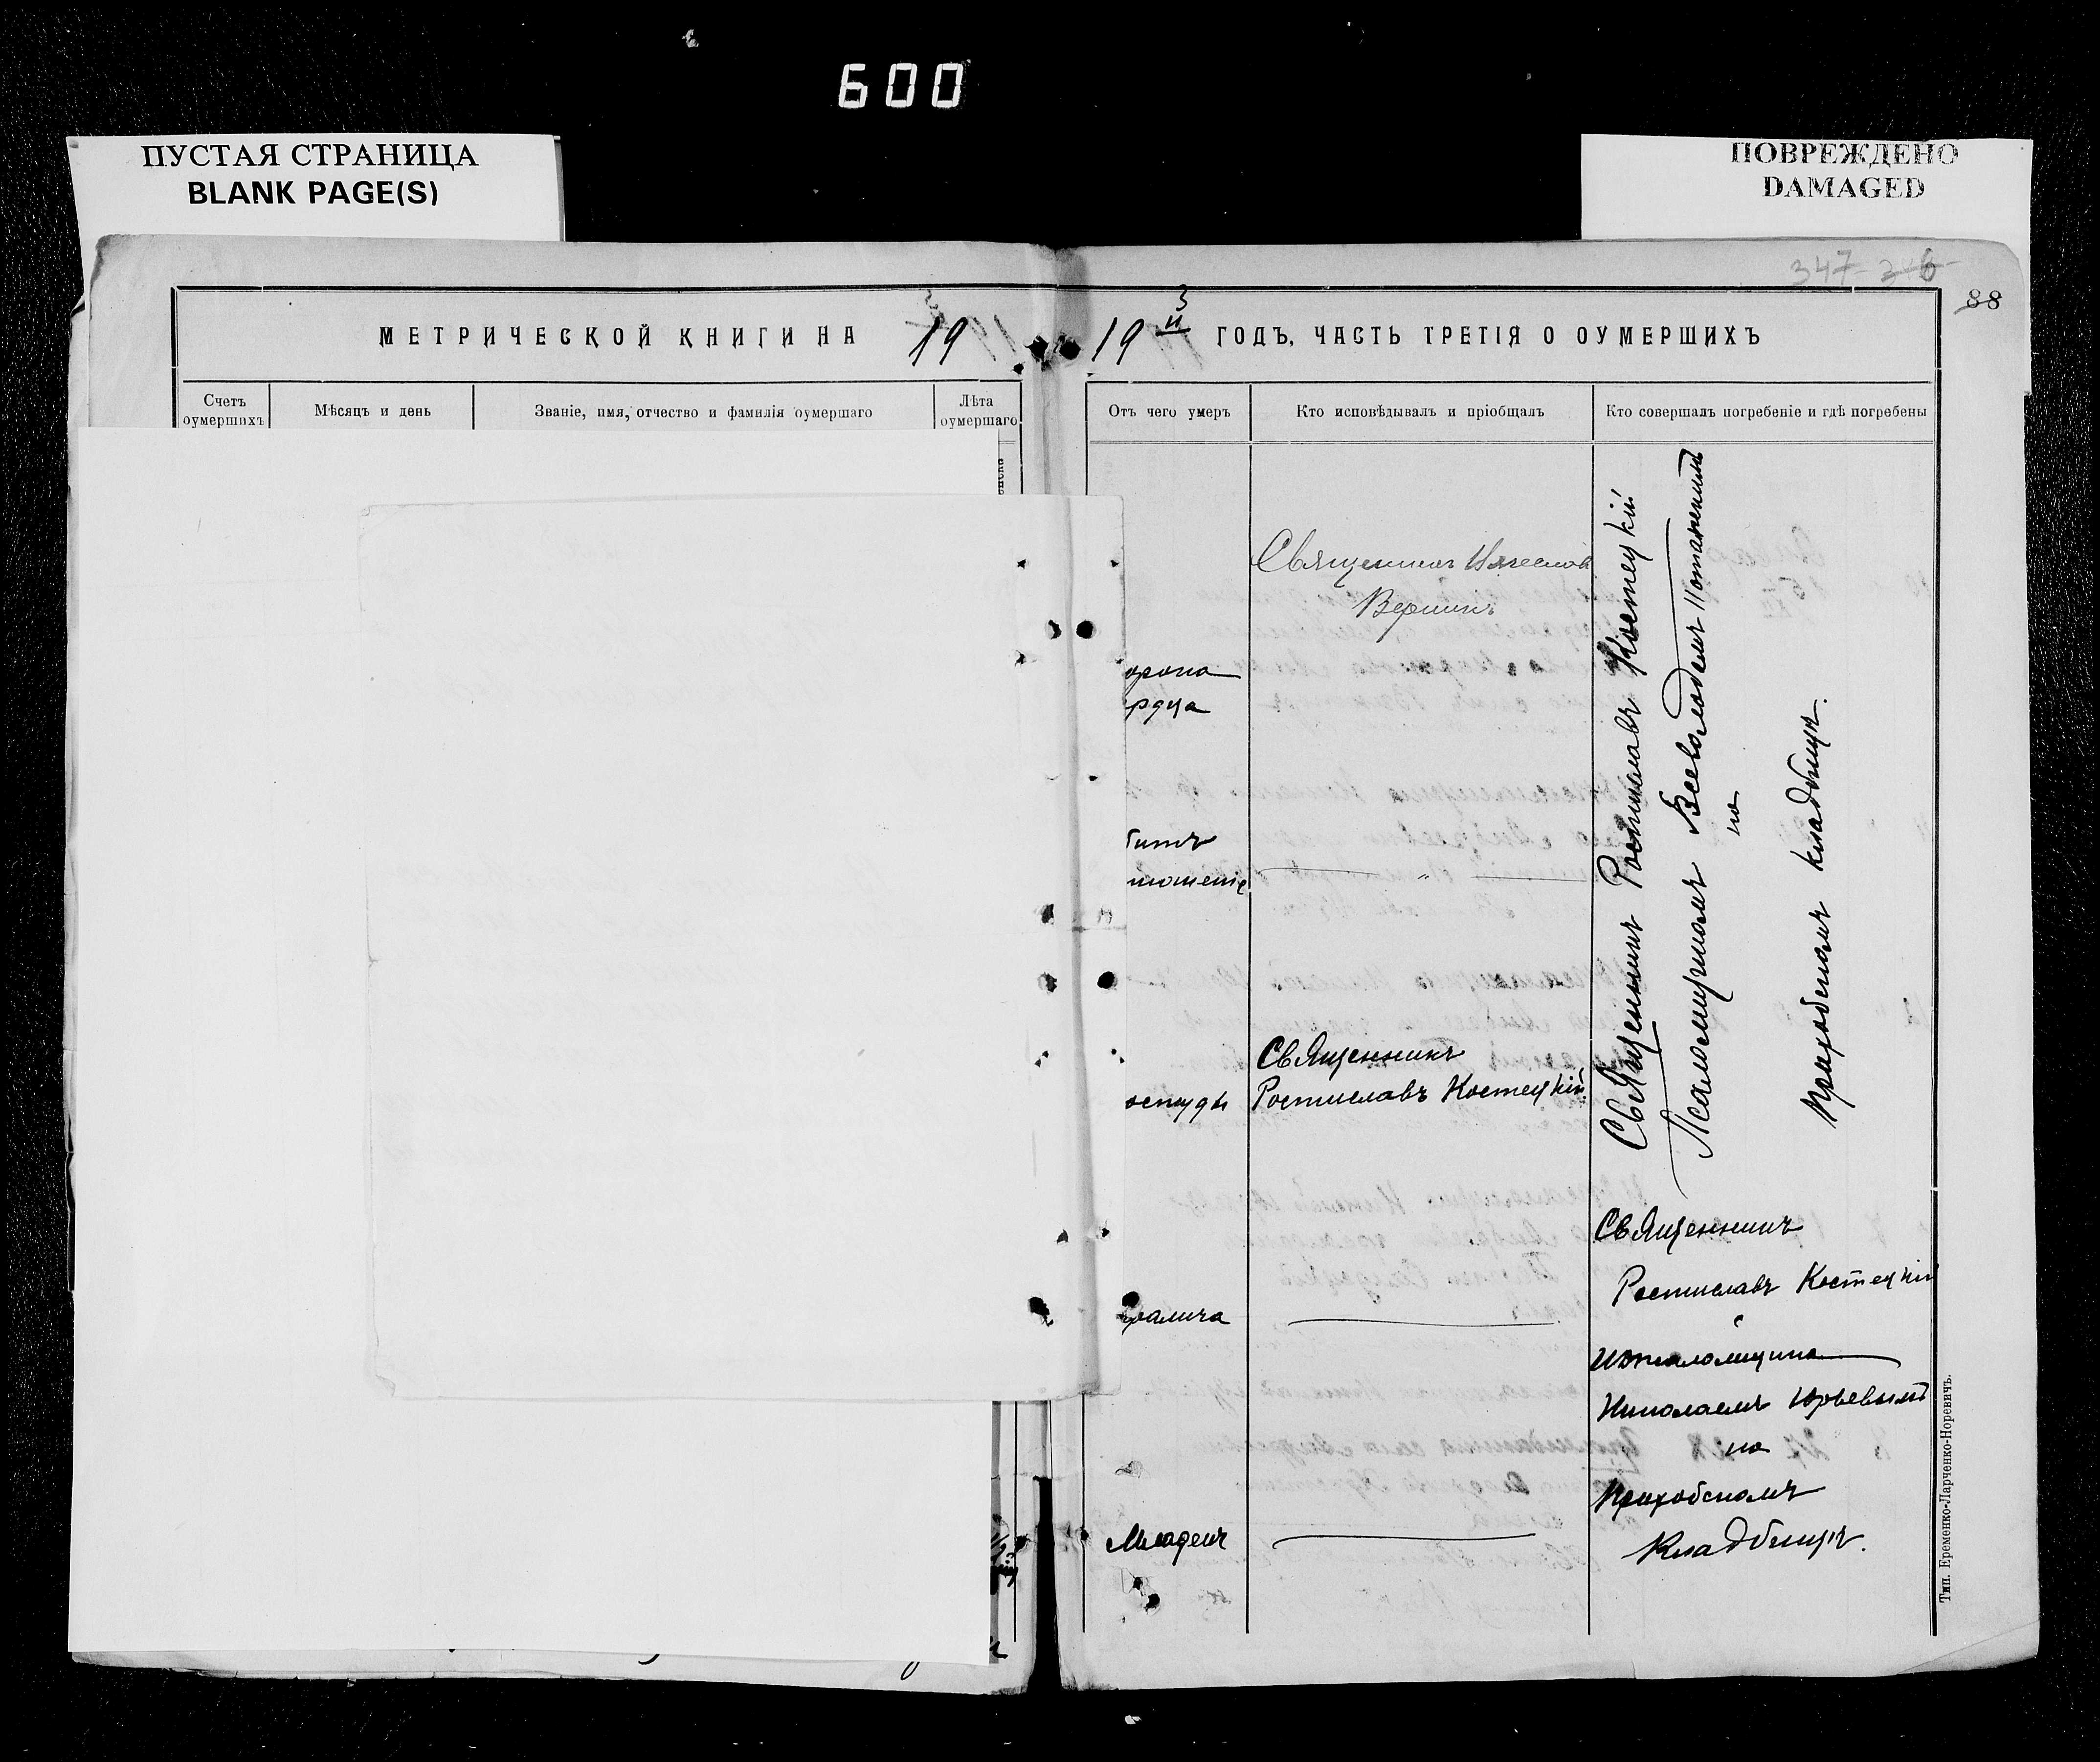 600
ПУСТАЯ СТРАНИЦА
BLANK PAGE(S)
ПОВРЕЖДЕНО
DAMAGED
347
88
МЕТРИЧЕСКОЙ КНИГИ НА 19
19 ГОДЪ, ЧАСТЬ ТРЕТІЯ О ОУМЕРШИХЪ
Счетъ оумершихъ
Мѣсяцъ и день
Званіе, имя, отчество и фамилія оумершаго
Лѣта оумершаго
Отъ чего умеръ
Кто исповѣдывалъ и пріобщалъ
Кто совершалъ погребеніе и гдѣ погребены
Священникъ
Вершинъ
орока
рдца
Священникъ Ростиславъ Костецкій
Псаломщикомъ Всеволодомъ
на
приходскомъ кладбищѣ.
Священникъ
Ростиславъ Костецкій
остуды
Священникъ
Ростиславъ Костецкій
и
псаломщика
Николаемъ Юрьевымъ
на
приходскомъ
кладбищѣ.
Младен
Тип. Еременко-Ларченко-Норевичъ.